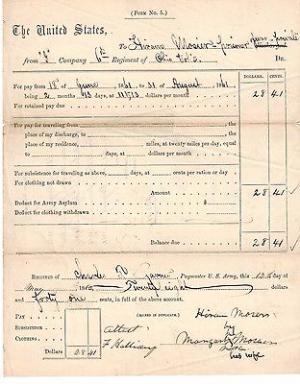 (FORM No. 5.)
The United States,
To Hiram Mosier Dr.
from "I" Company 6th Regiment of Ohio Vols.
DOLLARS. CENTS.
For pay from 18th of June /61 to 31 of August /61
being 2 months 13 days, at 11 dollars per month 28 41
For retained pay due
For pay for traveling from
the place of my discharge, to
place of my residence, miles, at twenty miles per day, equal
to days, at dollars per month
For subsistence for traveling as above, days, at cents per ration or day
For clothing not drawn
Amount 28 41
Deduct for Army Asylum
Deduct for clothing withdrawn
Balance due 28 41
RECEIVED of Charles Paymaster U. S. Army, this 12th day
of May 186 Twenty eight dollars
and forty one cents, in full of the above account.
(SIGNED IN DUPLICATE.)
PAY
SUBSISTENCE
CLOTHING
Dollars 28 41
attest
Hiram Mosers
by
Margaret Mosers
his wife